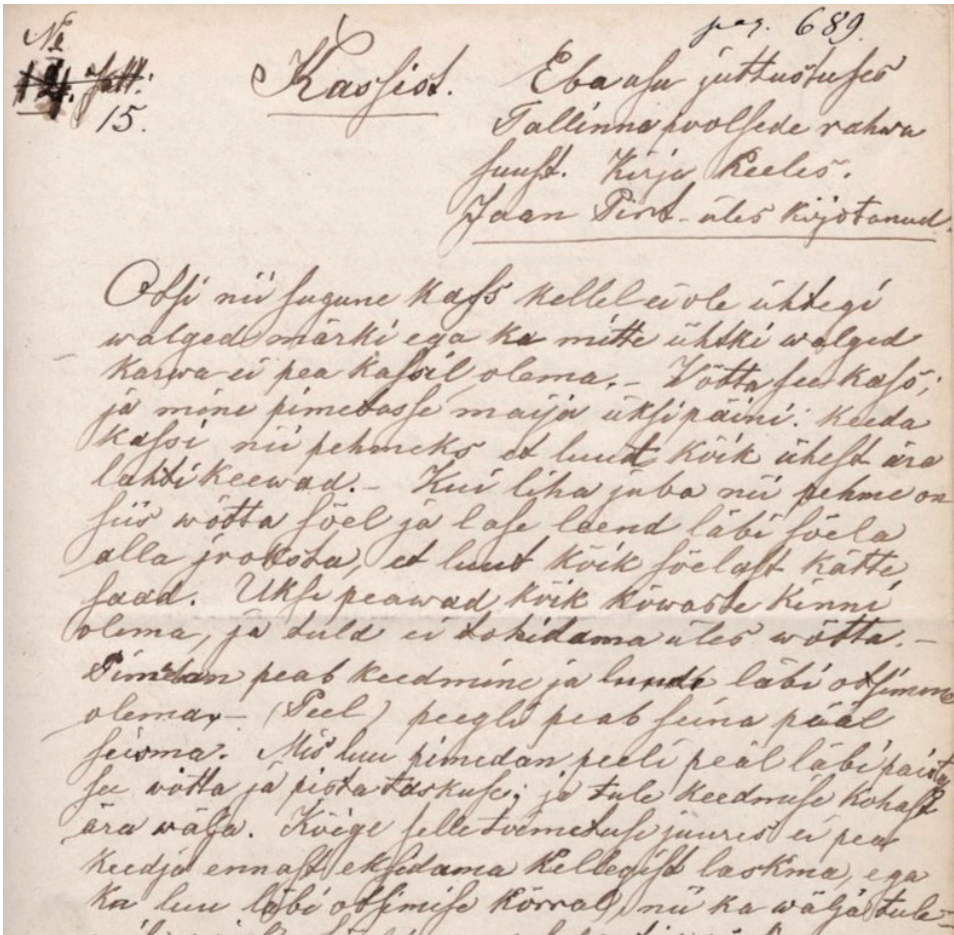 No
pag. 689.
15.
Kassist.
Ebausu juttustuses
Tallinna poolsede rahwa
suust. Kirja Keeles.
Jaan Pint üles kirjotanud.
Otsi nii sugune kass kellel ei ole ühtegi
walged märki ega ka mitte ühtki walged
karwa ei pea kassil olema. – Võtta see kass;
ja mine pimedasse majja üksipäini: keeda
kassi nii pehmeks et luut kõik ühest ära
lahti keewad. – Kui liha juba nii pehme on
siis wõtta sõel ja lase leend läbi sõela
alla joosta, et luut kõik sõelast kätte
saad. Ukse peawad kõik kõwaste kinni
olema, ja tuld ei tohi üles wõtta. –
Pimedan peab keedmine ja luude läbi otsimine
olema, – (Peel) peegli peab seina pääl
seisma. Mis luu pimedan peeli peäl läbi paistab
see võtta ja pista taskuse; ja tule keedmise kohast
ära wälja. Kõige selle toimetuse juures ei pea
keedja ennast eksidama kellegist laskma, ega
ka luu läbi otsimise kõrral, nii ka wälja tule-